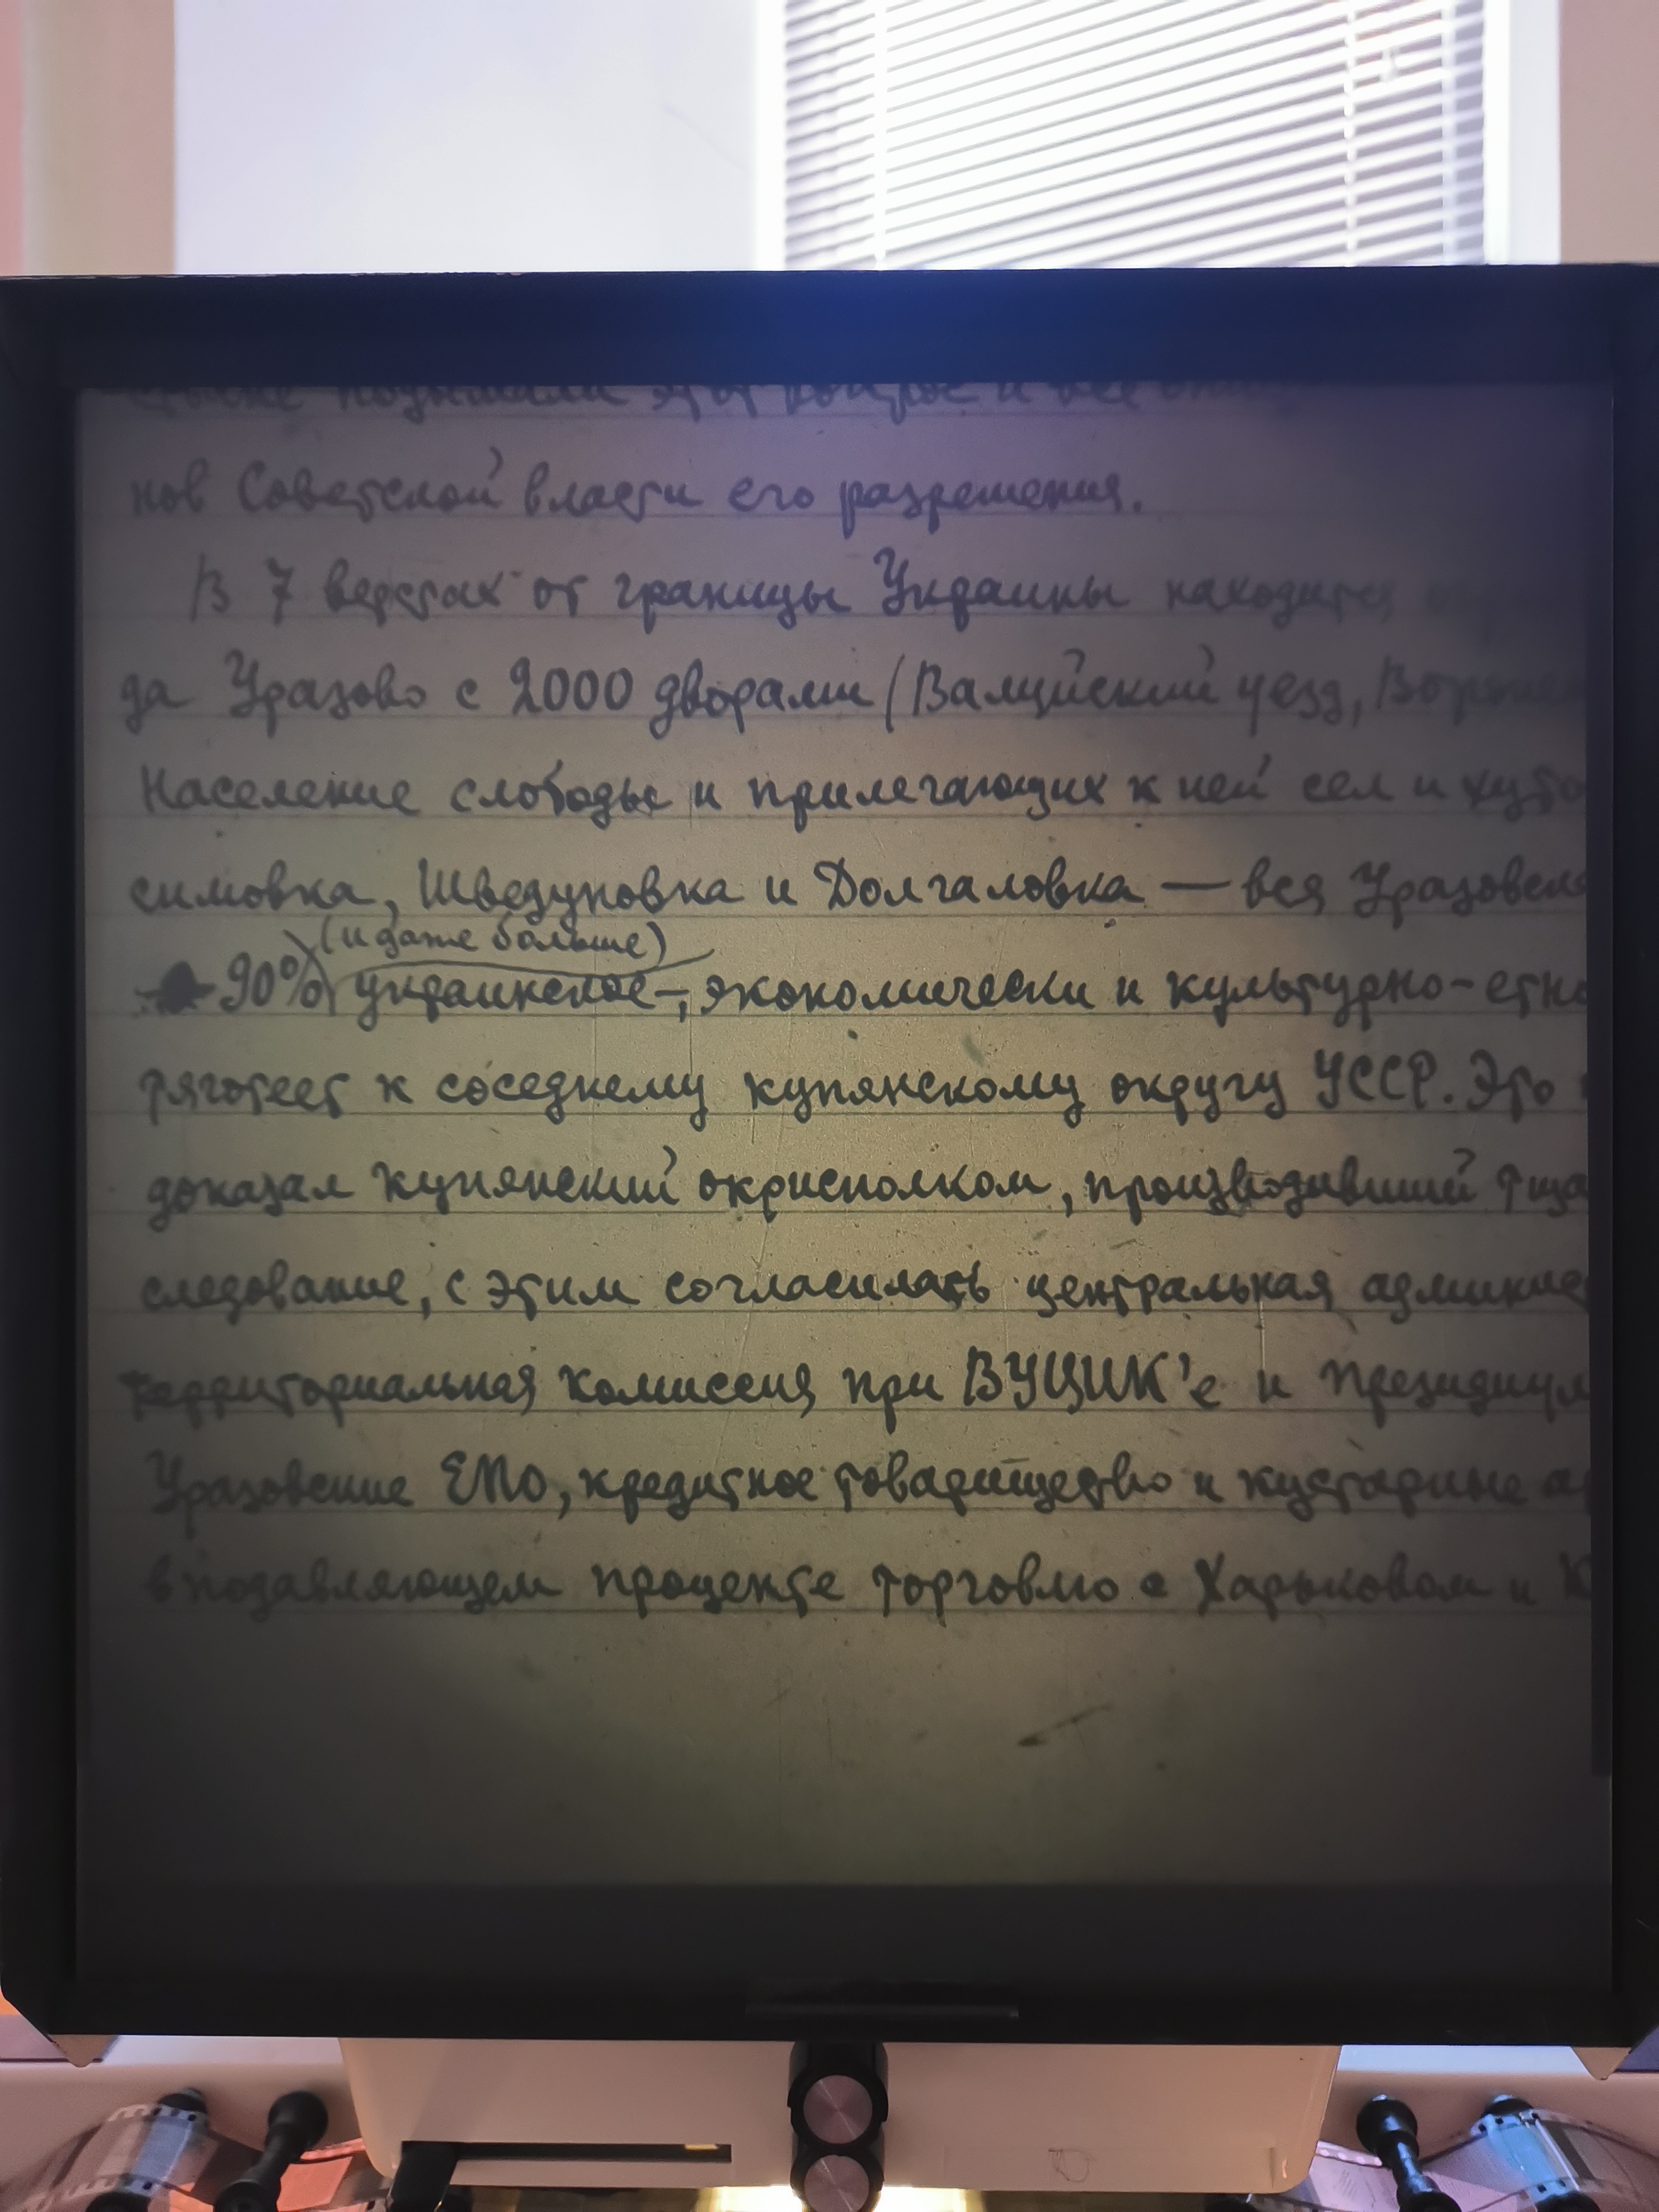 поднимали этот вопрос и
нов Советской власти его разрешения.
В 7 верстах от границы Украины находится
да Уразово с 2000 дворами (Валуйский уезд, Ворон
Население слободы и прилегающих к ней сел и хуто
симовка, Шведуновка и Долгаловка — вся Уразовск
(и даже больше)
90% украинское, экономически и культурно-етно
тяготеет к соседнему купянскому округу УССР. Это
доказал купянский окрисполком, производивший тща
следование, с этим согласилась центральная админис
территориальная комиссия при ВУЦИК'е и Президиум
Уразовские ЕПО, кредитное товарищество и кустарные а
в подавляющем проценте торговлю с Харьковом и К